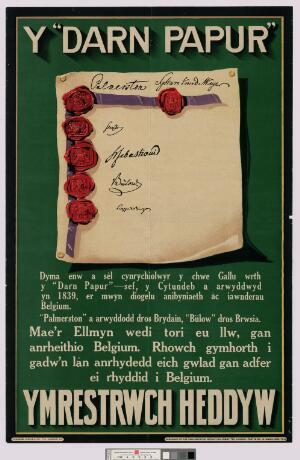 Y "DARN PAPUR"
Palmerston
Bülow
Dyma enw a sêl cynrychiolwyr y chwe Gallu wrth
y "Darn Papur"—sef, y Cytundeb a arwyddwyd
yn 1839, er mwyn diogelu anibyniaeth àc iawnderau
Belgium.
"Palmerston" a arwyddodd dros Brydain, "Bülow" dros Brwsia.
Mae'r Ellmyn wedi tori eu llw, gan
anrheithio Belgium. Rhowch gymhorth i
gadw'n lân anrhydedd eich gwlad gan adfer
ei rhyddid i Belgium.
YMRESTRWCH HEDDYW